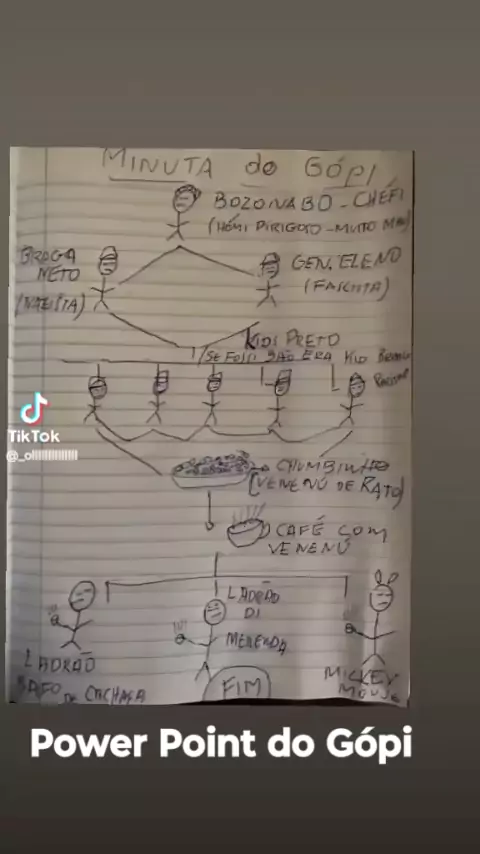 MINUTA do GÓPI
BOZONABO - CHÉFI
(HÓMI PIRIGOSO - MUITO MAU)
BRAGA NETO
(NAZISTA)
GEN. ELENO
(FAICHITA)
KIDS PRETO
SE FOSSI
ERA KID
CHUMBINHO
(VENENÚ DE RATO)
CAFÉ COM
VENENÚ
LADRÃO
BAFO DE CACHAÇA
LADRÃO
DI
MERENDA
MICKEY
MOUSE
FIM
TikTok
Power Point do Gópi